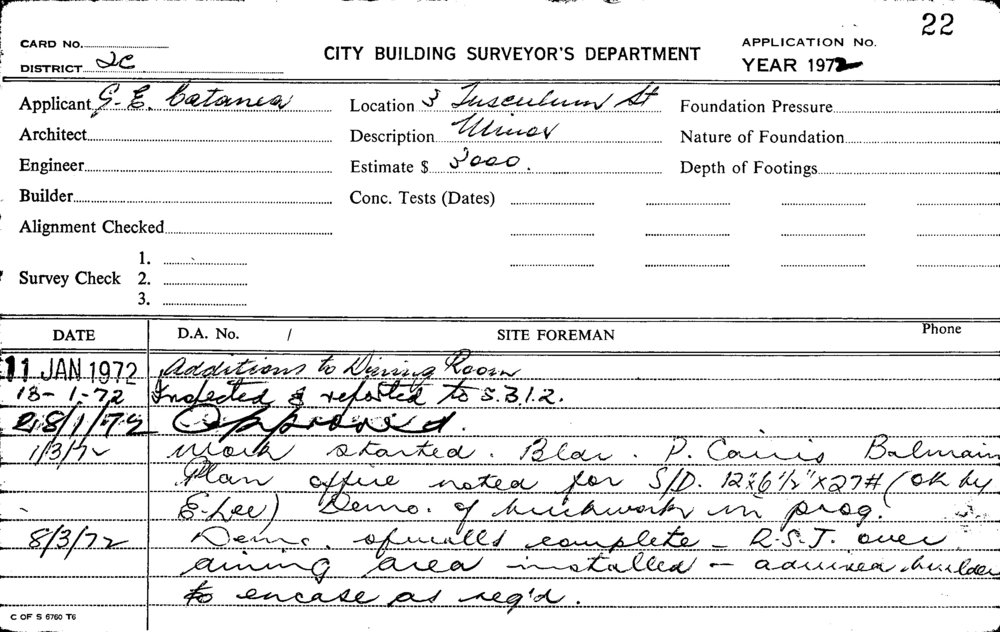 22
CARD No.
CITY BUILDING SURVEYOR'S DEPARTMENT
APPLICATION No.
DISTRICT 2C
YEAR 1972
Applicant G. E. Catanea
Location 3 Tusculum St
Foundation Pressure
Architect
Description Minor
Nature of Foundation
Engineer
Estimate $ 3000.
Depth of Footings
Builder
Conc. Tests (Dates)
Alignment Checked
1.
Survey Check 2.
3.
DATE D.A. No. / SITE FOREMAN Phone
11 JAN 1972 Additions to Dining Room
13-1-72 Inspected & reported to S.B.I.2.
28/1/72 Approved.
1/3/72 Work started. Bldr. P. Cairis Balmain
Plan office noted for S/D. 12"x6½"x27# (ok by
E. Lee) Demo. of brickwork in prog.
8/3/72 Demo. of walls complete - R.S.J. over
dining area installed - advised builder
to encase as req'd.
C OF S 6760 T6